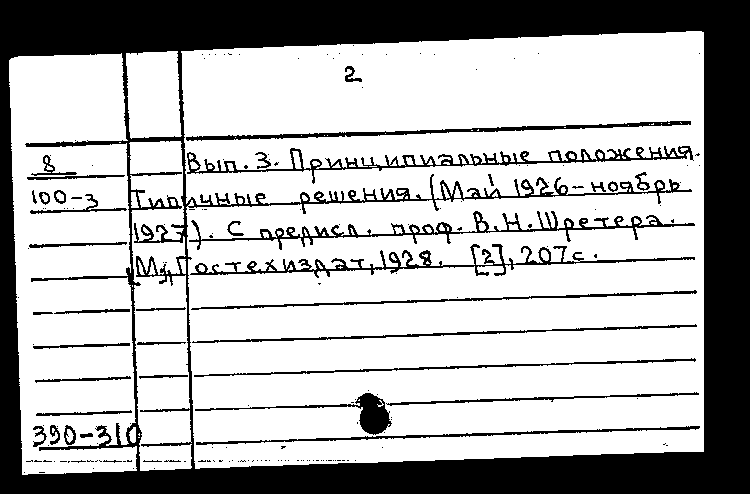 2
8 Вып. 3. Принципиальные положения.
100-3 Типичные решения. (Май 1926-ноябрь
1927). С предисл. проф. В.Н. Шретера.
[М.], Гостехиздат, 1928. [2], 207с.
390-310